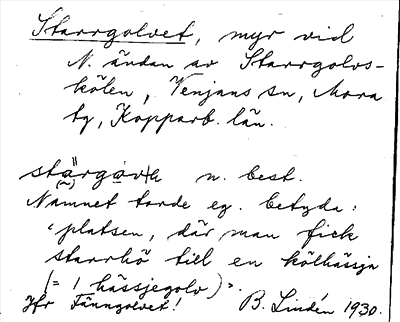 Starrgolvet, myr vid
N. ändan av Starrgolvs-
kölen, Venjans sn, Mora
tg, Kopparb. län.
n. best.
Namnet torde eg. betyda:
'platsen, där man fick
starrhö till en kölhässja
(= 1 hässjegolv)'.
Jfr Fänngolvet! B. Lindén 1930.